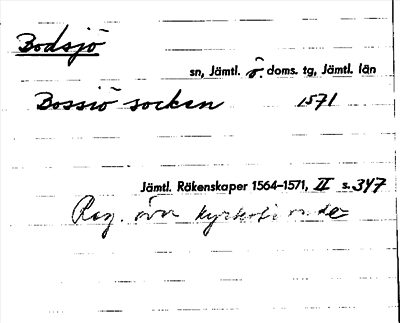 Bodsjö
sn, Jämtl. ö. doms. tg, Jämtl. län
Bossiö socken 1571
Jämtl. Räkenskaper 1564–1571, II s. 347
Reg. över kyrkotionde